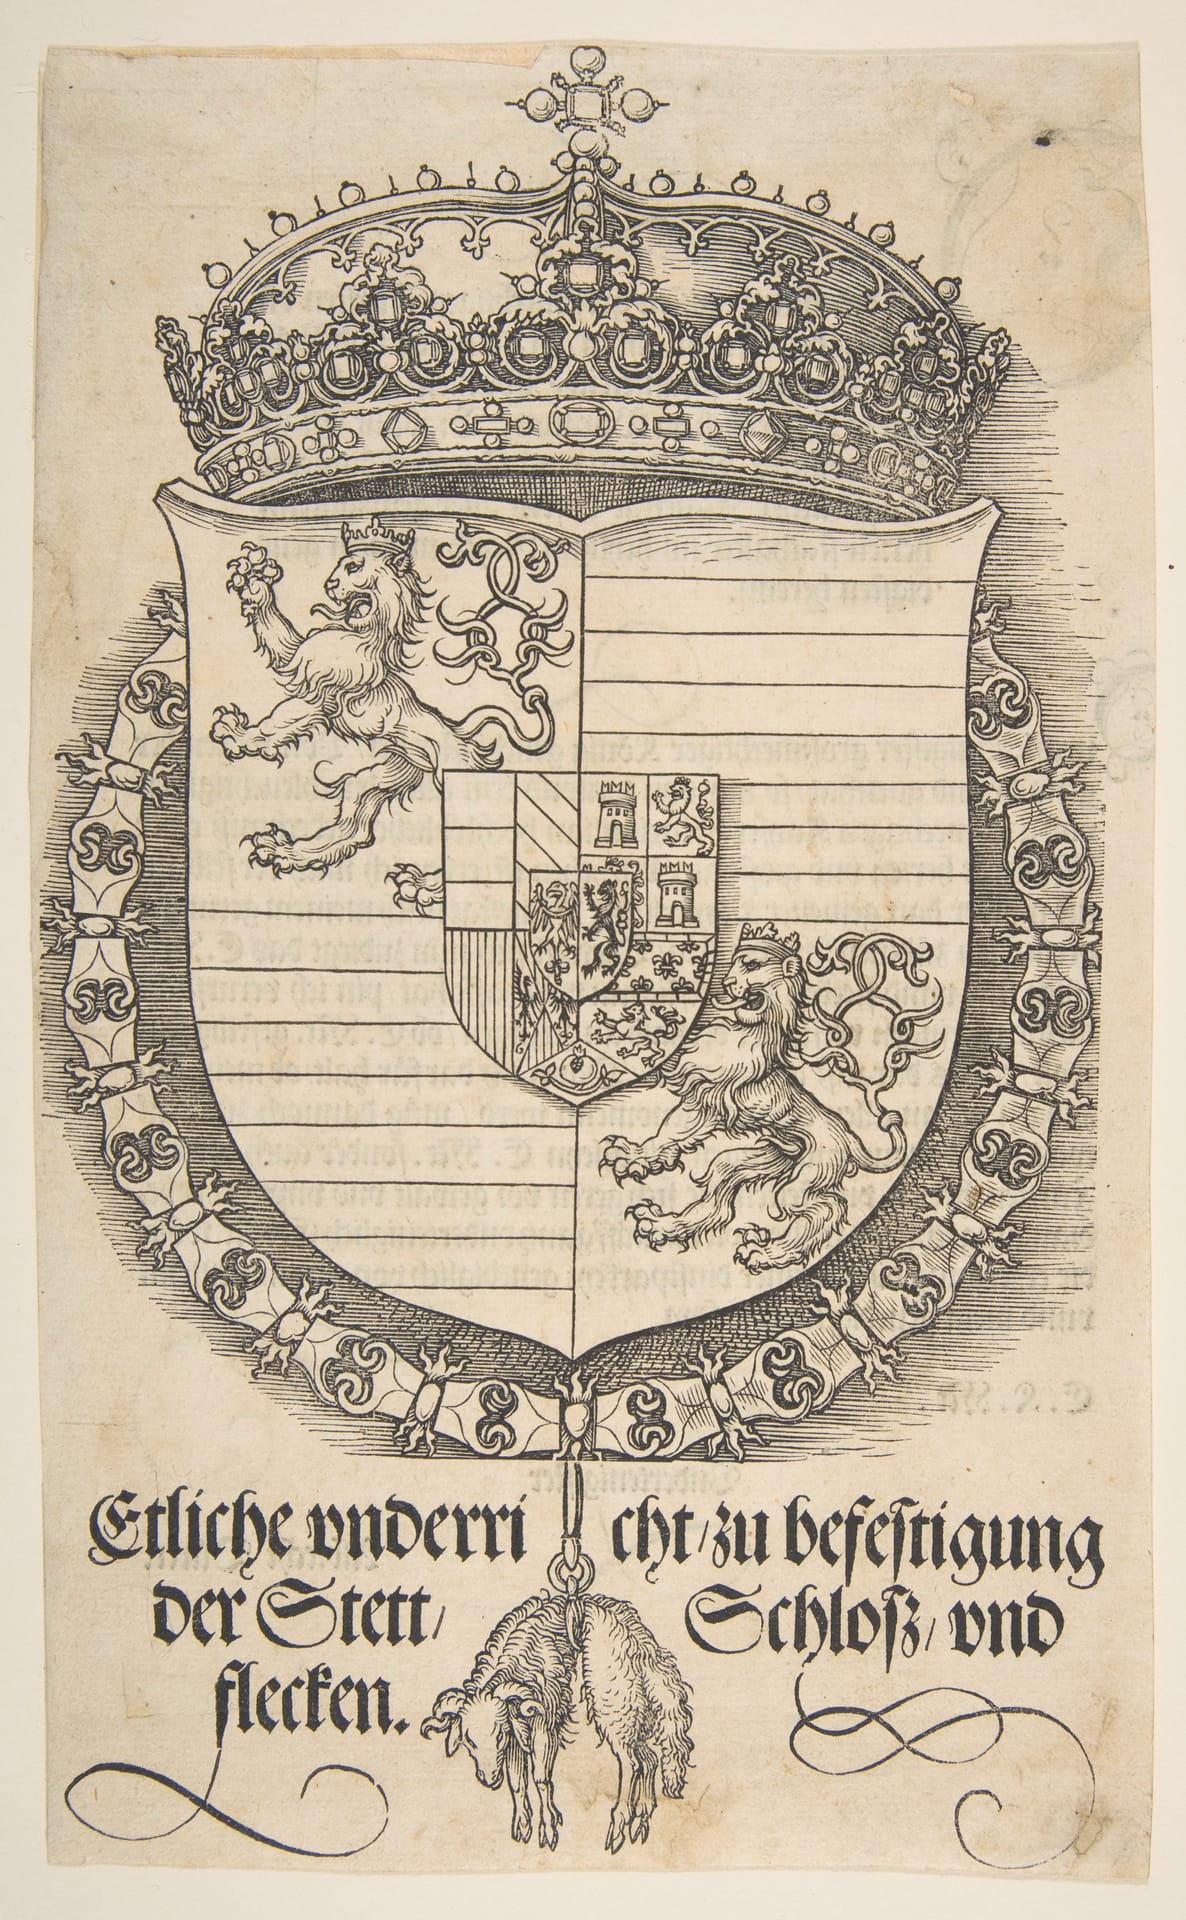 Etliche vnderri cht/zu befeſtigung
der Stett/ Schloſz/ vnd
flecken.